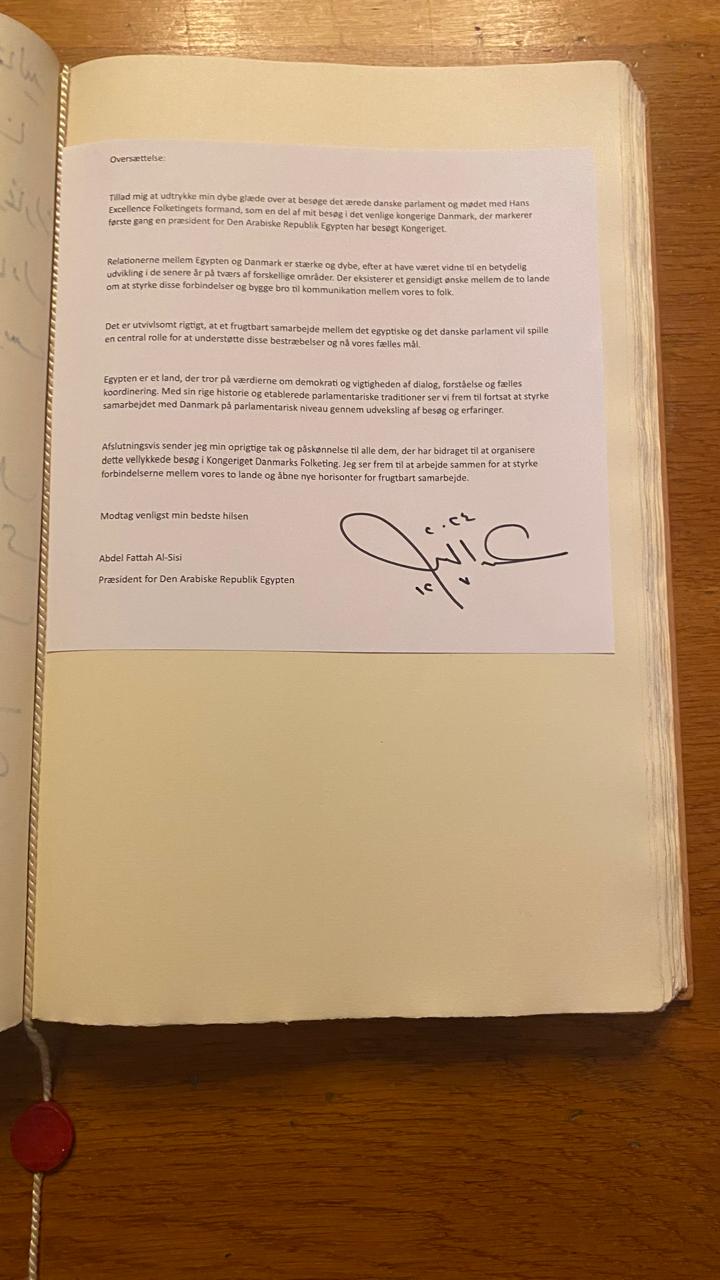 Oversættelse:
Tillad mig at udtrykke min dybe glæde over at besøge det ærede danske parlament og mødet med Hans
Excellence Folketingets formand, som en del af mit besøg i det venlige kongerige Danmark, der markerer
første gang en præsident for Den Arabiske Republik Egypten har besøgt Kongeriget.
Relationerne mellem Egypten og Danmark er stærke og dybe, efter at have været vidne til en betydelig
udvikling i de senere år på tværs af forskellige områder. Der eksisterer et gensidigt ønske mellem de to lande
om at styrke disse forbindelser og bygge bro til kommunikation mellem vores to folk.
Det er utvivlsomt rigtigt, at et frugtbart samarbejde mellem det egyptiske og det danske parlament vil spille
en central rolle for at understøtte disse bestræbelser og nå vores fælles mål.
Egypten er et land, der tror på værdierne om demokrati og vigtigheden af dialog, forståelse og fælles
koordinering. Med sin rige historie og etablerede parlamentariske traditioner ser vi frem til fortsat at styrke
samarbejdet med Danmark på parlamentarisk niveau gennem udveksling af besøg og erfaringer.
Afslutningsvis sender jeg min oprigtige tak og påskønnelse til alle dem, der har bidraget til at organisere
dette vellykkede besøg i Kongeriget Danmarks Folketing. Jeg ser frem til at arbejde sammen for at styrke
forbindelserne mellem vores to lande og åbne nye horisonter for frugtbart samarbejde.
Modtag venligst min bedste hilsen
٢٠٢٤
Abdel Fattah Al-Sisi
Præsident for Den Arabiske Republik Egypten